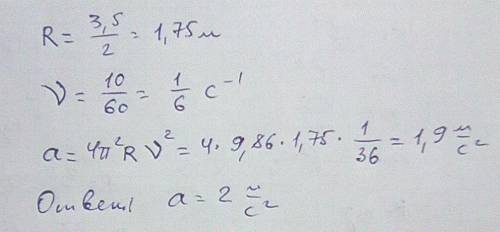 R = 3,5/2 = 1,75 м
ν = 10/60 = 1/6 с⁻¹
a = 4π²Rν² = 4 · 9,86 · 1,75 · 1/36 = 1,9 м/с²
Ответ: a = 2 м/с²